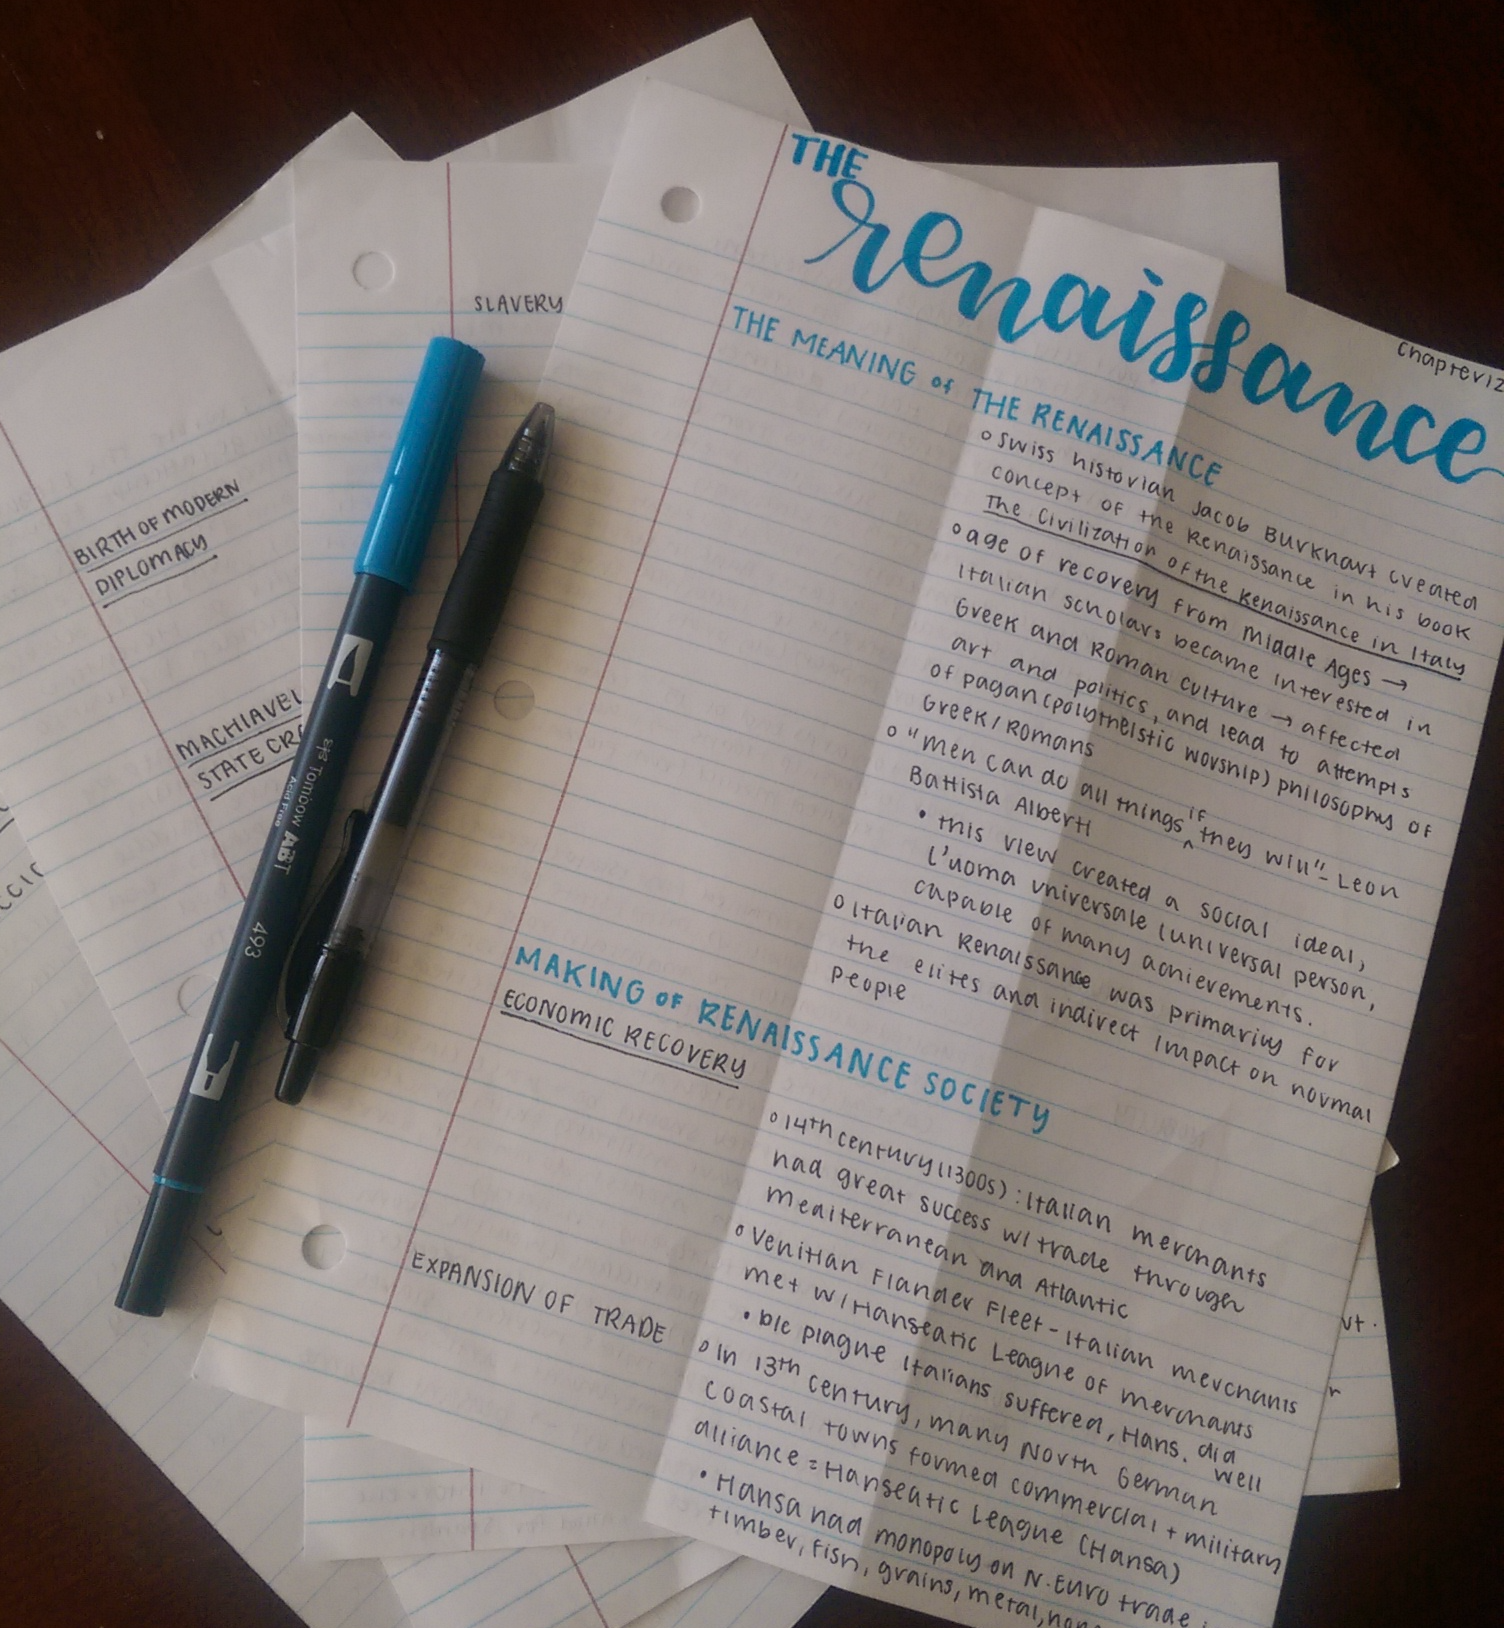 THE
renaissance
Chapter 12
THE MEANING of THE RENAISSANCE
o Swiss historian Jacob Burkhart created
concept of the Renaissance in his book
The Civilization of the Renaissance in Italy
o age of recovery from Middle Ages →
Italian scholars became interested in
Greek and Roman culture → affected
art and politics, and lead to attempts
of pagan (polytheistic worship) philosophy of
Greek/Romans
o "Men can do all things if they will" - Leon
Battista Alberti
• this view created a social ideal,
l'uoma universale (universal person,
capable of many achievements.
o Italian Renaissance was primarily for
the elites and indirect impact on normal
people
MAKING of RENAISSANCE SOCIETY
ECONOMIC RECOVERY
o 14th century (1300s): Italian merchants
had great success w/ trade through
Mediterranean and Atlantic
o Venitian Flander Fleet - Italian merchants
met w/ Hanseatic League of merchants
• b/c plague Italians suffered, Hans. did
well
EXPANSION OF TRADE
o In 13th century, many North German
coastal towns formed commercial + military
alliance = Hanseatic League (Hansa)
• Hansa had monopoly on N. Euro trade
timber, fish, grains, metal,
SLAVERY
BIRTH OF MODERN
DIPLOMACY
MACHIAVEL
STATE CR
Tombow ABT
Acid Free
493